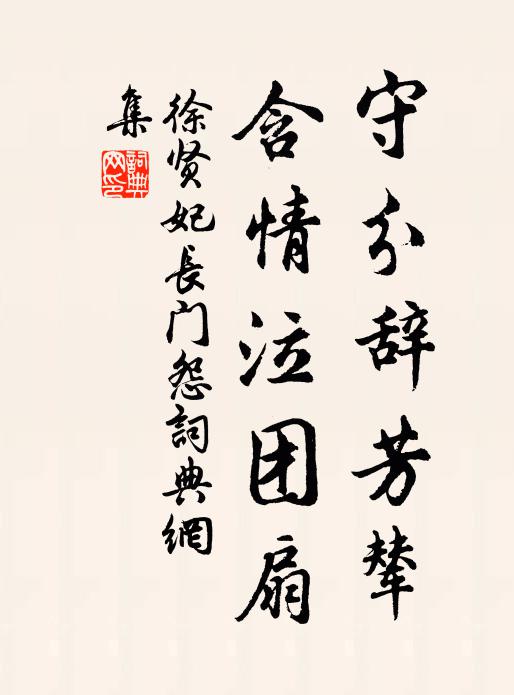 守分辞芳辇
含情泣团扇
徐贤妃長门怨詞典網
集
詞典
网印